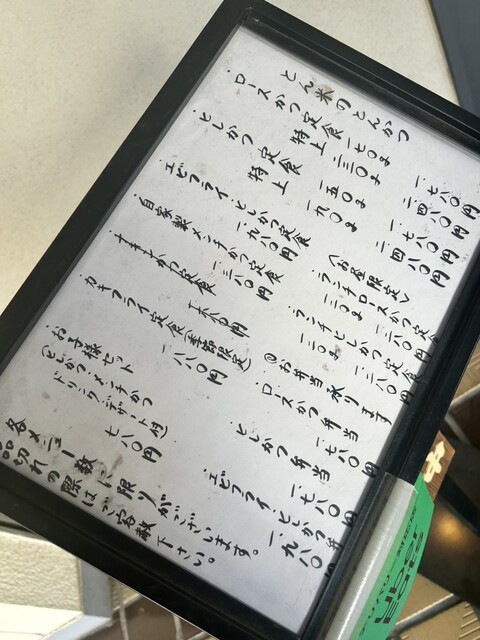 とん米のとんかつ
ロースかつ定食 一七〇g 一、七八〇円
特上 二三〇g 二、四八〇円
ヒレかつ定食 一五〇g 一、七八〇円
特上 一九〇g 二、四八〇円
エビフライ・ヒレかつ定食
一、九八〇円
自家製メンチかつ定食
一、三八〇円
チキンかつ定食
カキフライ定食(季節限定)
一、八八〇円
お子様セット
(ヒレかつ・メンチかつ
ドリンク、デザート付)
七八〇円
〈お昼限定〉
ランチロースかつ定食
一三〇g 一、二八〇円
ランチヒレかつ定食
一二〇g 一、二八〇円
@お弁当承ります
ロースかつ弁当
一、七八〇円
ヒレかつ弁当
一、七八〇円
エビフライ・ヒレかつ弁
一、九八〇円
各メニュー数に限りがございます。
品切れの際はご容赦下さい。